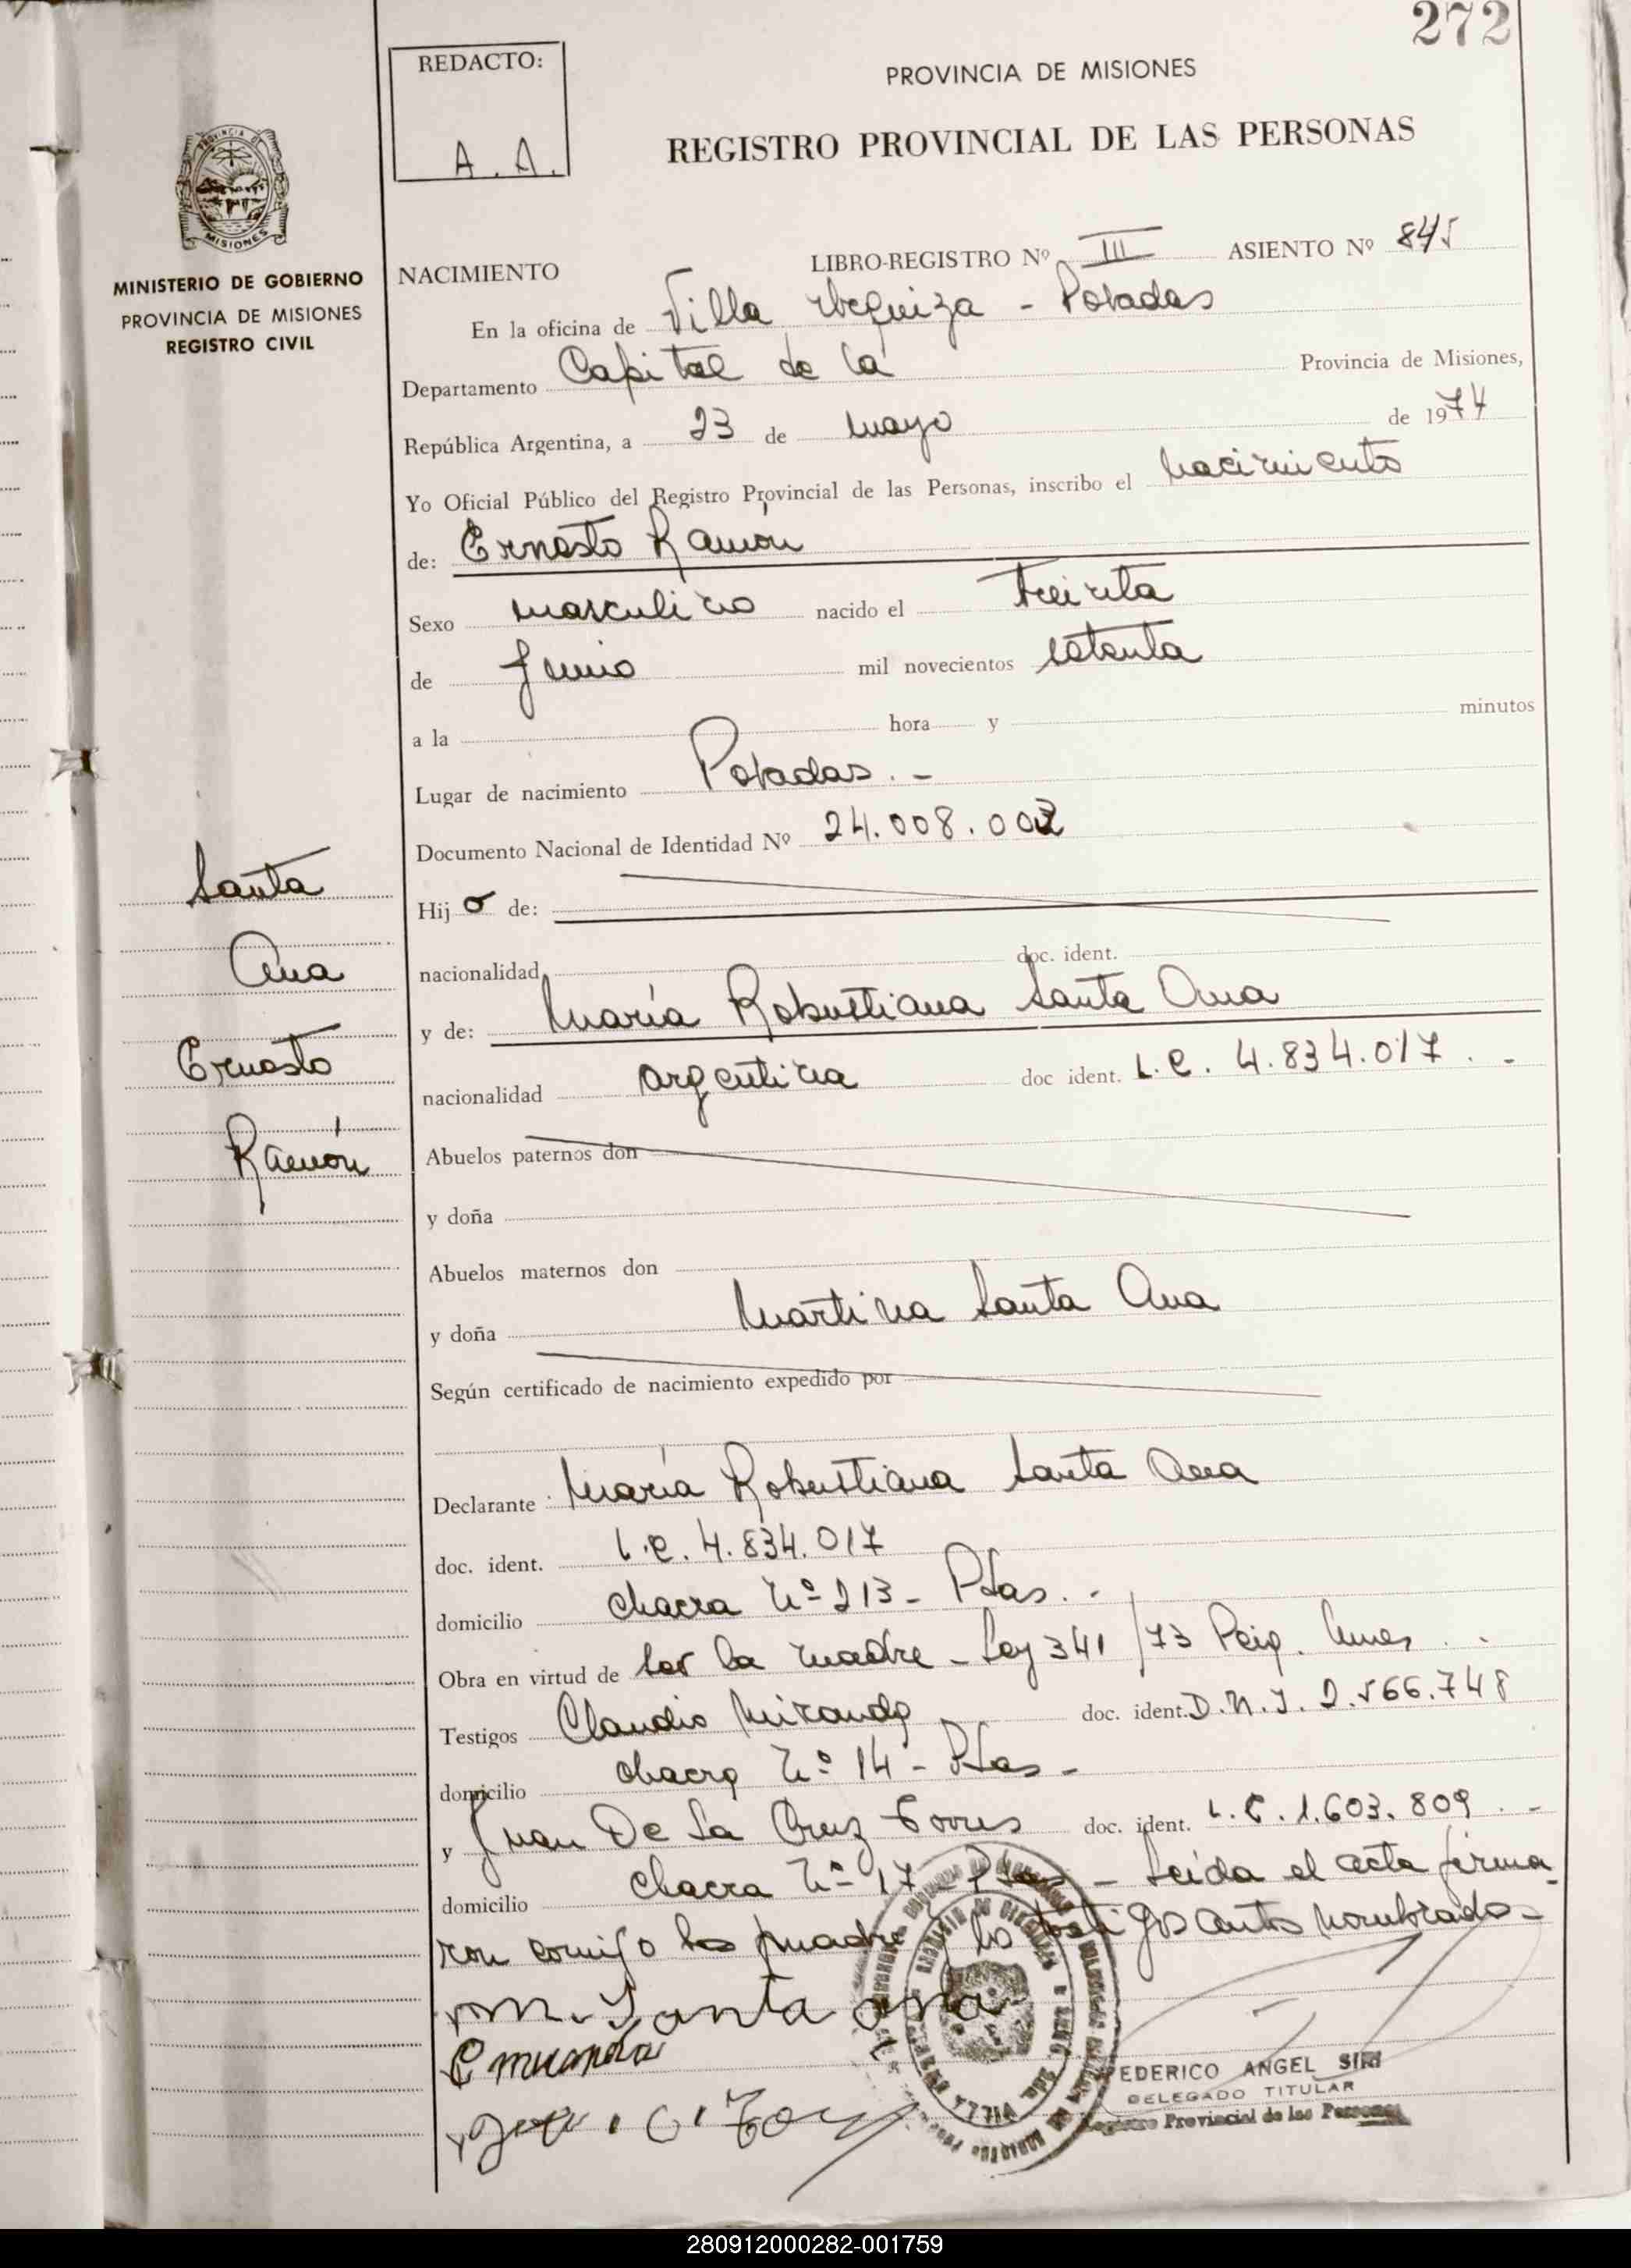 272
REDACTO:
A. A.
PROVINCIA DE MISIONES
REGISTRO PROVINCIAL DE LAS PERSONAS
PROVINCIA DE
MISIONES
MINISTERIO DE GOBIERNO
PROVINCIA DE MISIONES
REGISTRO CIVIL
NACIMIENTO LIBRO-REGISTRO Nº III ASIENTO Nº 845
En la oficina de Villa Urquiza - Posadas
Departamento Capital de la Provincia de Misiones,
República Argentina, a 23 de mayo de 1974
Yo Oficial Público del Registro Provincial de las Personas, inscribo el nacimiento
de: Ernesto Ramón
Sexo masculino nacido el Treinta
de Junio mil novecientos setenta
a la hora y minutos
Lugar de nacimiento Posadas. -
Documento Nacional de Identidad Nº 24.008.002
Hijo de:
nacionalidad doc. ident.
y de: María Robustiana Santa Ana
nacionalidad argentina doc ident. L.C. 4.834.017. -
Santa
Ana
Ernesto
Ramón
Abuelos paternos don
y doña
Abuelos maternos don
y doña Martina Santa Ana
Según certificado de nacimiento expedido por
Declarante María Robustiana Santa Ana
doc. ident. L.C. 4.834.017
domicilio chacra Nº 213 - Pdas. -
Obra en virtud de ser la madre - Ley 341/73
Testigos Claudio Miranda doc. ident. D.N.I. 2.566.748
domicilio chacra Nº 14 - Pdas -
y Juan De La Cruz Torres doc. ident. L.E. 1.603.809. -
domicilio Chacra Nº 17 - Pdas - Leida el acta firma
ron comigo la madre y los testigos antes nombrados -
M. Santa ana
C miranda
FEDERICO ANGEL SIRI
DELEGADO TITULAR
Registro Provincial de las Personas
280912000282-001759